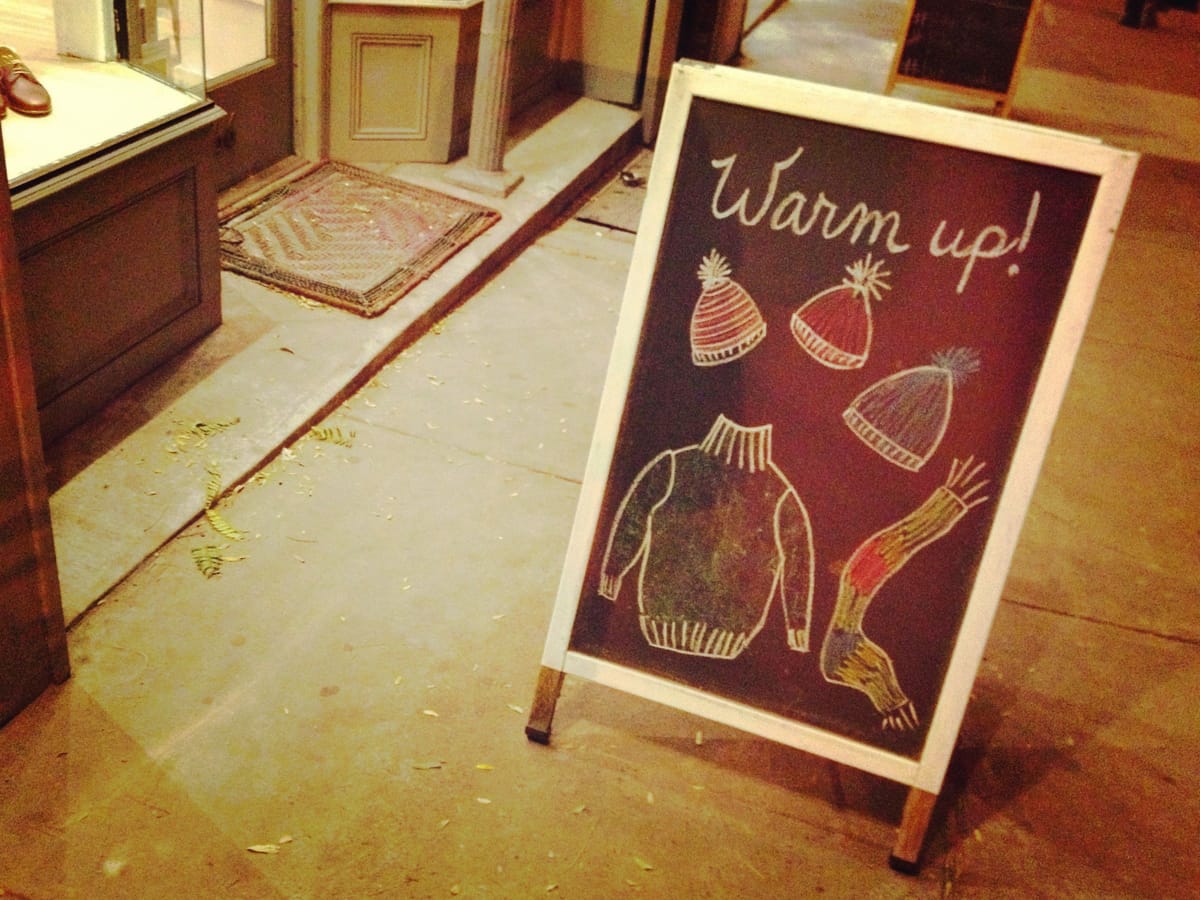 Warm up!